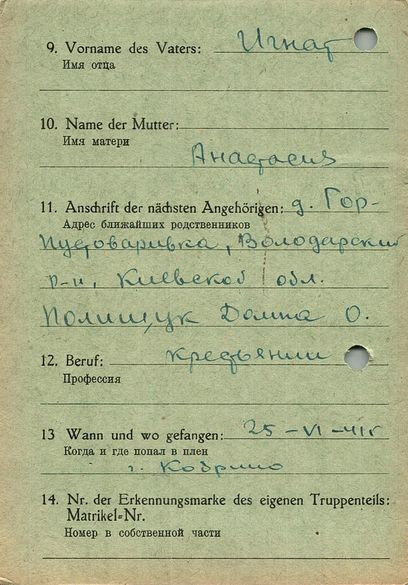 9. Vorname des Vaters: Игнат
Имя отца
10. Name der Mutter:
Имя матери
Анастасия
11. Anschrift der nächsten Angehörigen: д. Гор-
Адрес ближайших родственников
Пустоваривка, Володарский
р-н, Киевской обл.
Полищук Домна О.
12. Beruf: крестьянин
Профессия
13 Wann und wo gefangen: 25-VI-41г
Когда и где попал в плен
г. Кобрино
14. Nr. der Erkennungsmarke des eigenen Truppenteils:
Matrikel-Nr.
Номер в собственной части